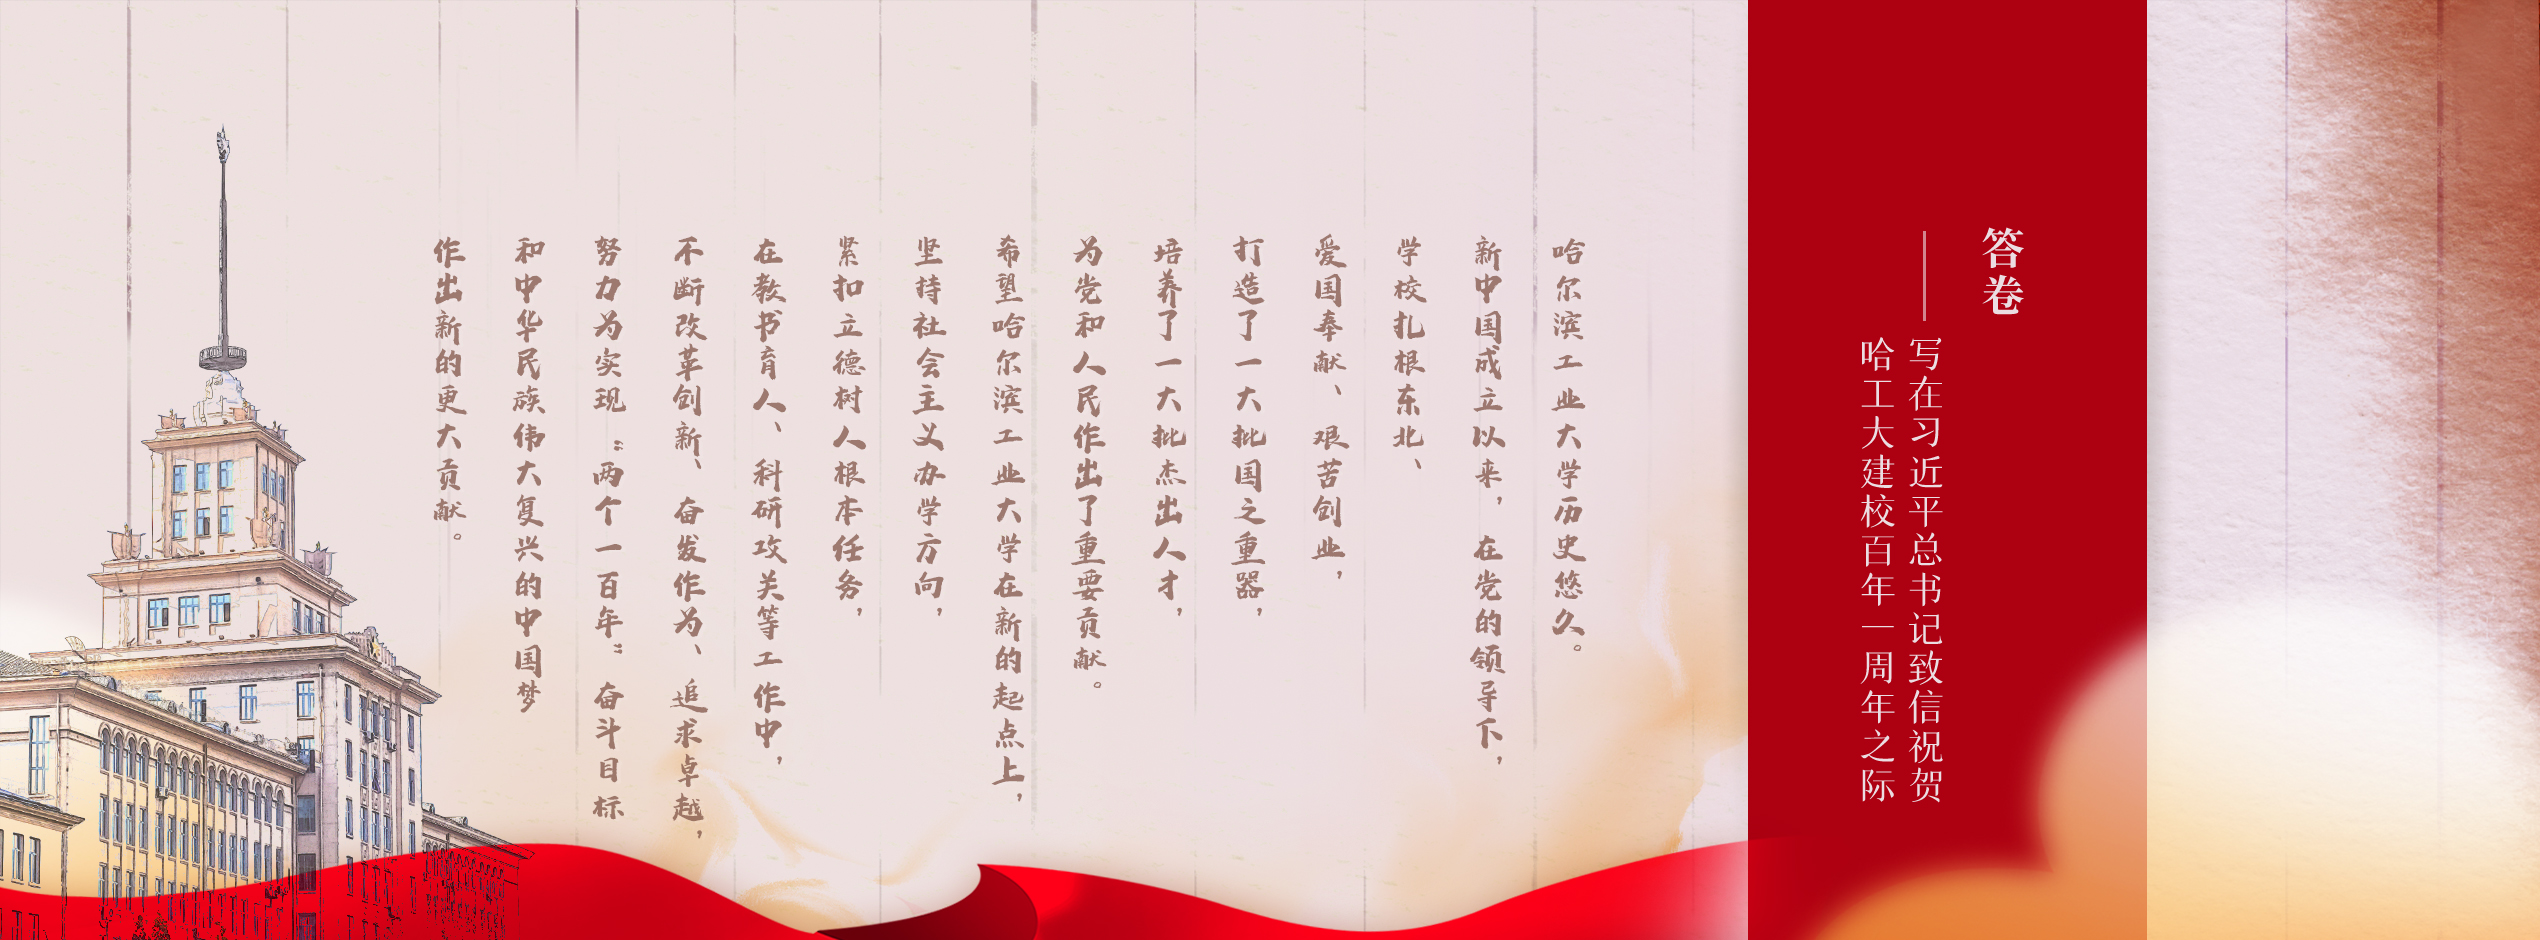 答卷
——写在习近平总书记致信祝贺
哈工大建校百年一周年之际
哈尔滨工业大学历史悠久。
新中国成立以来，在党的领导下，
学校扎根东北、
爱国奉献、艰苦创业，
打造了一大批国之重器，
培养了一大批杰出人才，
为党和人民作出了重要贡献。
希望哈尔滨工业大学在新的起点上，
坚持社会主义办学方向，
紧扣立德树人根本任务，
在教书育人、科研攻关等工作中，
不断改革创新、奋发作为、追求卓越，
努力为实现“两个一百年”奋斗目标
和中华民族伟大复兴的中国梦
作出新的更大贡献。